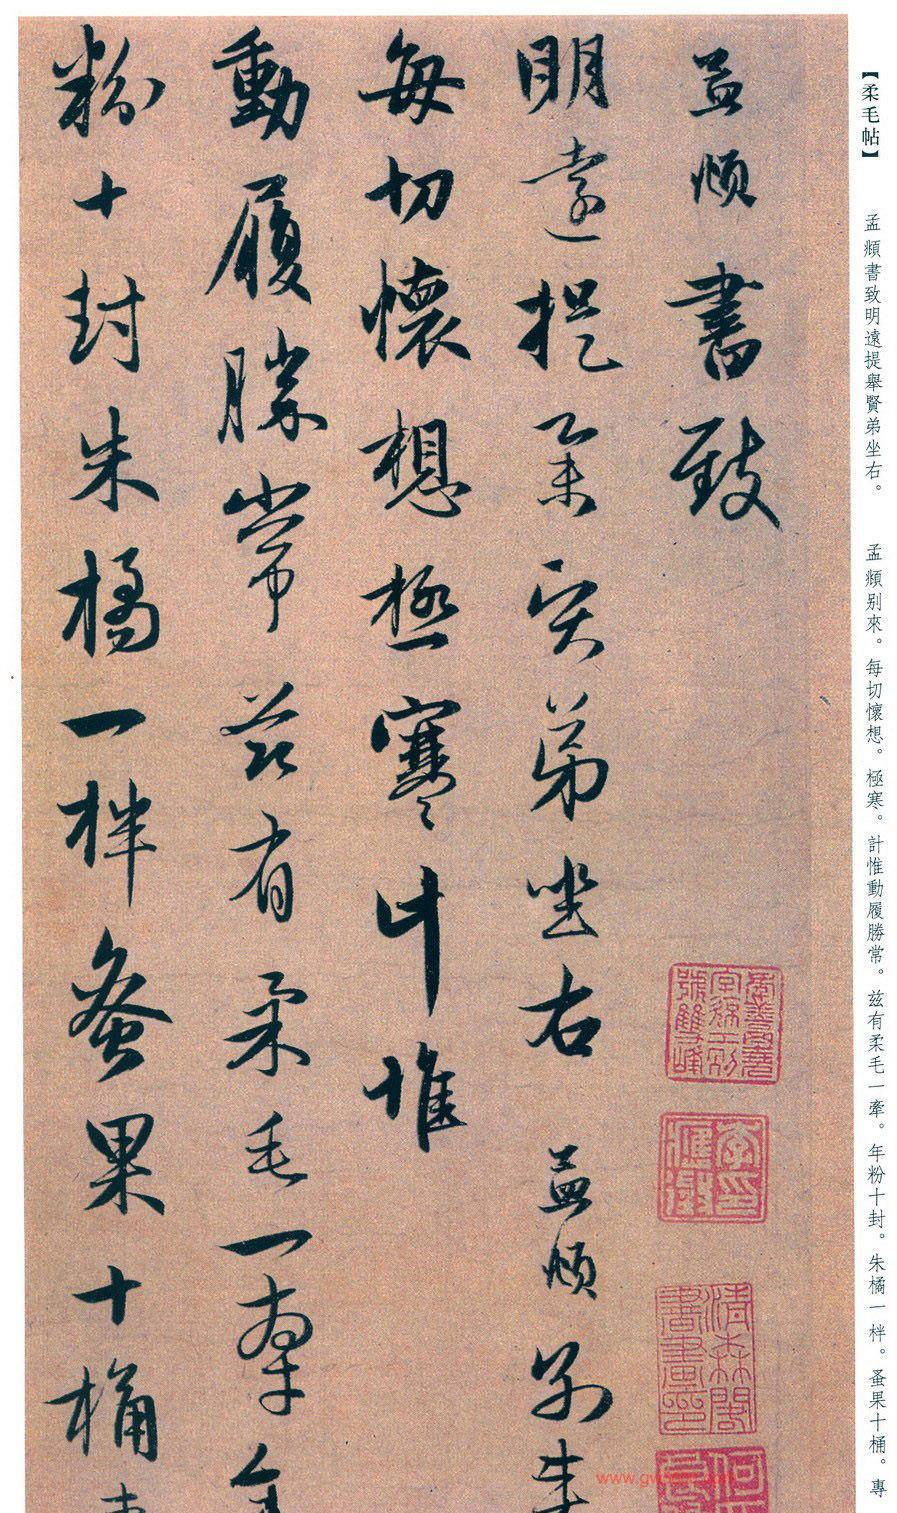 【柔毛帖】 孟頫書致明遠提舉賢弟坐右。 孟頫别來。每切懷想。極寒。計惟動履勝常。兹有柔毛一牽。年粉十封。朱橘一柈。蚤果十桶。專
孟頫書致
明遠提舉賢弟坐右 孟頫别來
每切懷想極寒計惟
動履勝常兹有柔毛一牽年
粉十封朱橘一柈蚤果十桶專